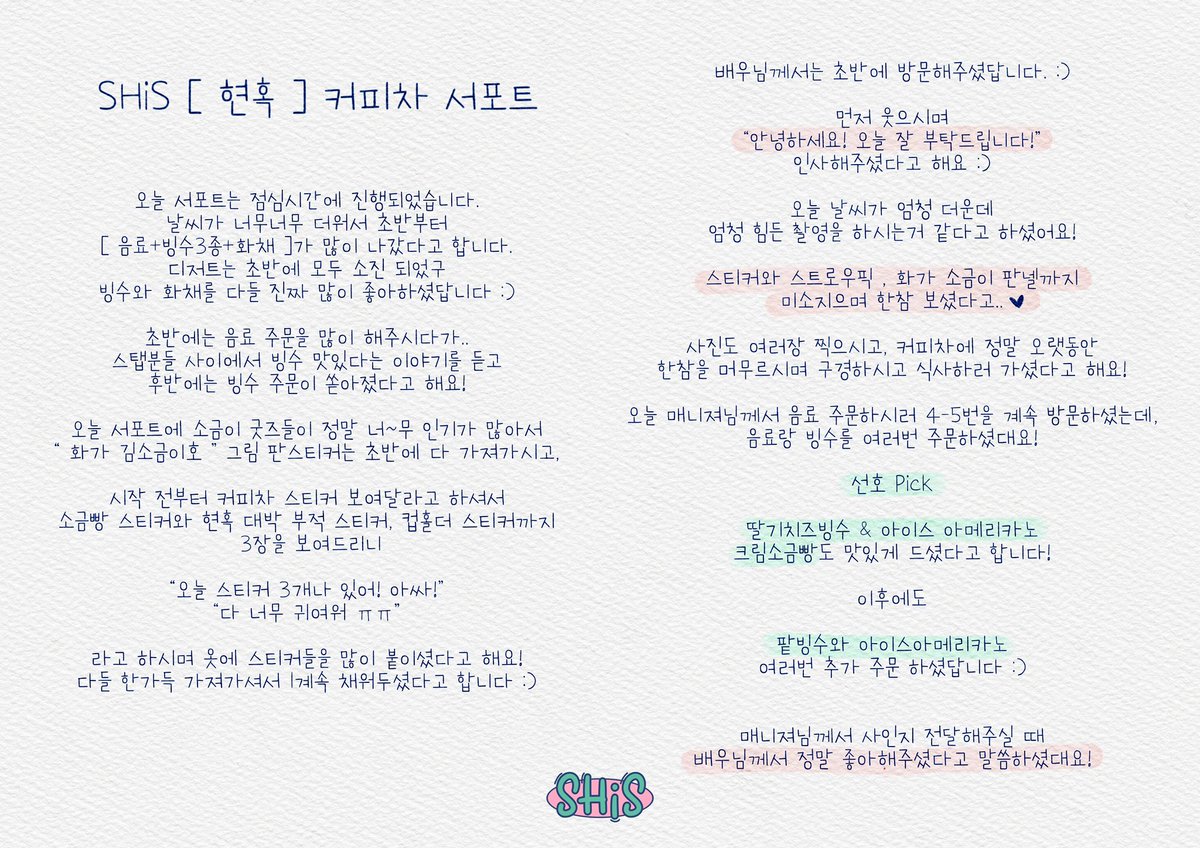 SHiS [ 현혹 ] 커피차 서포트
오늘 서포트는 점심시간에 진행되었습니다.
날씨가 너무너무 더워서 초반부터
[ 음료+빙수3종+화채 ]가 많이 나갔다고 합니다.
디저트는 초반에 모두 소진 되었구
빙수와 화채를 다들 진짜 많이 좋아하셨답니다 :)
초반에는 음료 주문을 많이 해주시다가..
스탭분들 사이에서 빙수 맛있다는 이야기를 듣고
후반에는 빙수 주문이 쏟아졌다고 해요!
오늘 서포트에 소금이 굿즈들이 정말 너~무 인기가 많아서
“ 화가 김소금이호 ” 그림 판스티커는 초반에 다 가져가시고,
시작 전부터 커피차 스티커 보여달라고 하셔서
소금빵 스티커와 현혹 대박 부적 스티커, 컵홀더 스티커까지
3장을 보여드리니
“오늘 스티커 3개나 있어! 아싸!”
“다 너무 귀여워 ㅠㅠ”
라고 하시며 옷에 스티커들을 많이 붙이셨다고 해요!
다들 한가득 가져가셔서 l계속 채워두셨다고 합니다 :)
배우님께서는 초반에 방문해주셨답니다. :)
먼저 웃으시며
“안녕하세요! 오늘 잘 부탁드립니다!”
인사해주셨다고 해요 :)
오늘 날씨가 엄청 더운데
엄청 힘든 촬영을 하시는거 같다고 하셨어요!
스티커와 스트로우픽 , 화가 소금이 판넬까지
미소지으며 한참 보셨다고.. ♥
사진도 여러장 찍으시고, 커피차에 정말 오랫동안
한참을 머무르시며 구경하시고 식사하러 가셨다고 해요!
오늘 매니져님께서 음료 주문하시러 4-5번을 계속 방문하셨는데,
음료랑 빙수를 여러번 주문하셨대요!
선호 Pick
딸기치즈빙수 & 아이스 아메리카노
크림소금빵도 맛있게 드셨다고 합니다!
이후에도
팥빙수와 아이스아메리카노
여러번 추가 주문 하셨답니다 :)
매니져님께서 사인지 전달해주실 때
배우님께서 정말 좋아해주셨다고 말씀하셨대요!
SHiS